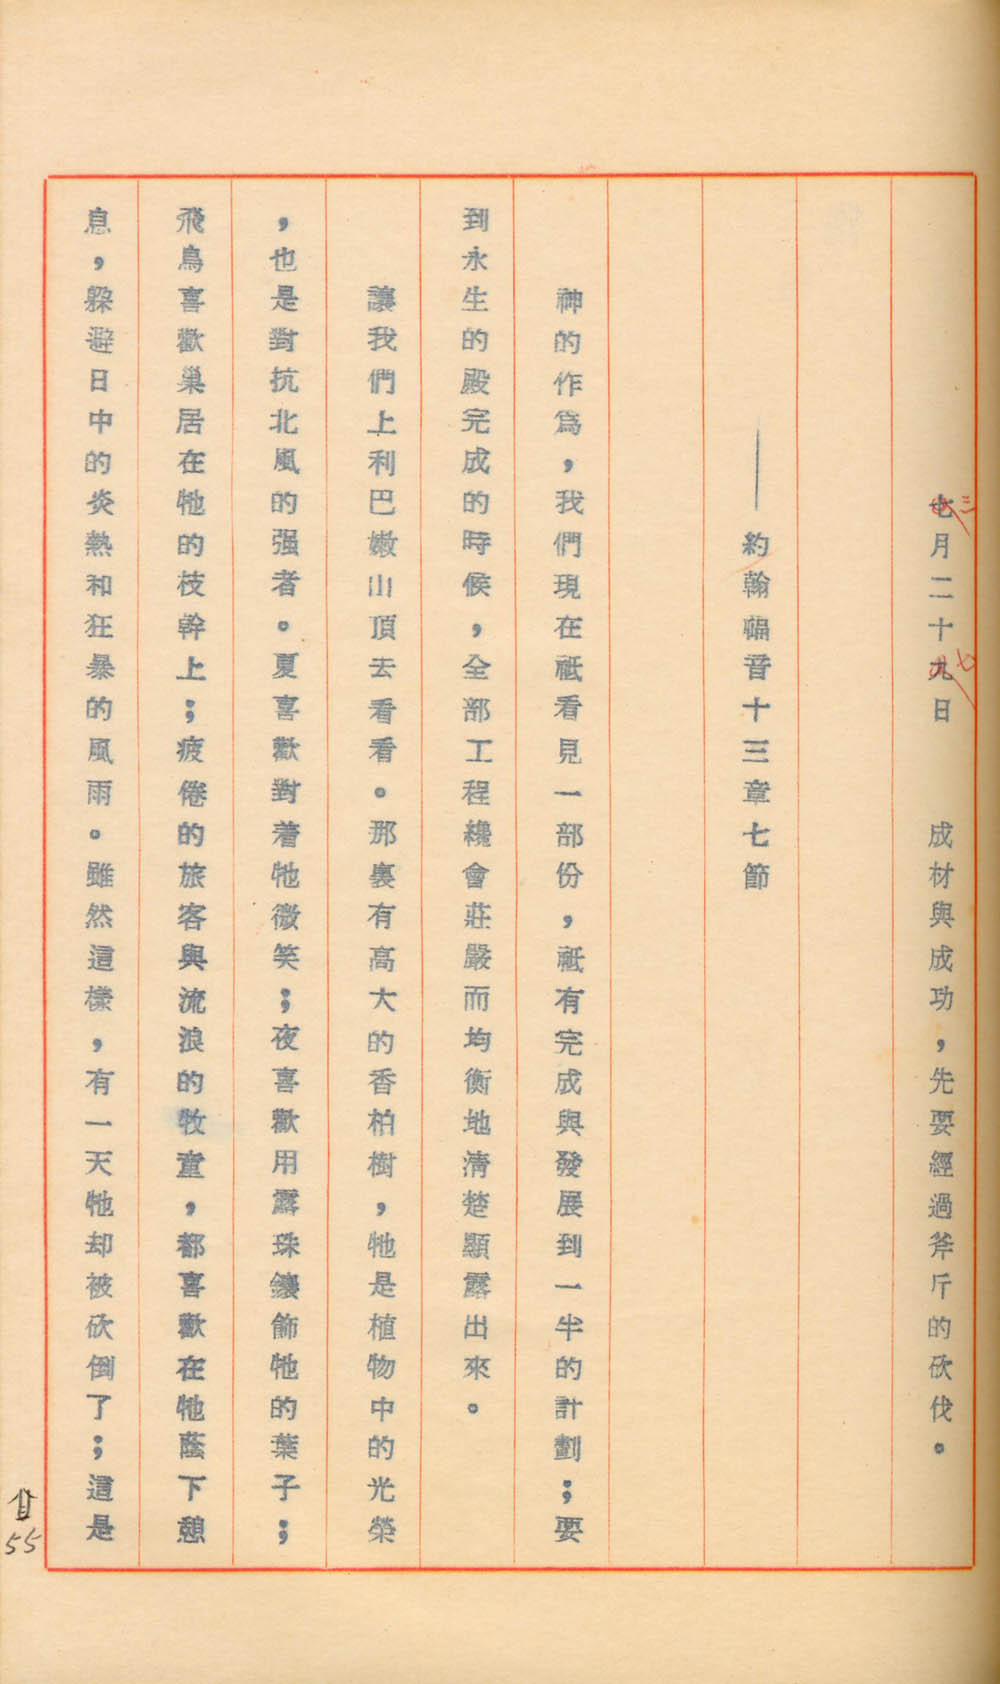 七月二十九日　成材與成功，先要經過斧斤的砍伐。
三
七
——約翰福音十三章七節
神的作爲，我們現在祗看見一部份，祗有完成與發展到一半的計劃；要
到永生的殿完成的時候，全部工程纔會莊嚴而均衡地清楚顯露出來。
讓我們上利巴嫩山頂去看看。那裏有高大的香柏樹，牠是植物中的光榮
，也是對抗北風的强者。夏喜歡對着牠微笑；夜喜歡用露珠鑲飾牠的葉子；
飛鳥喜歡巢居在牠的枝幹上；疲倦的旅客與流浪的牧童，都喜歡在牠蔭下憩
息，躲避日中的炎熱和狂暴的風雨。雖然這樣，有一天牠却被砍倒了；這是
55